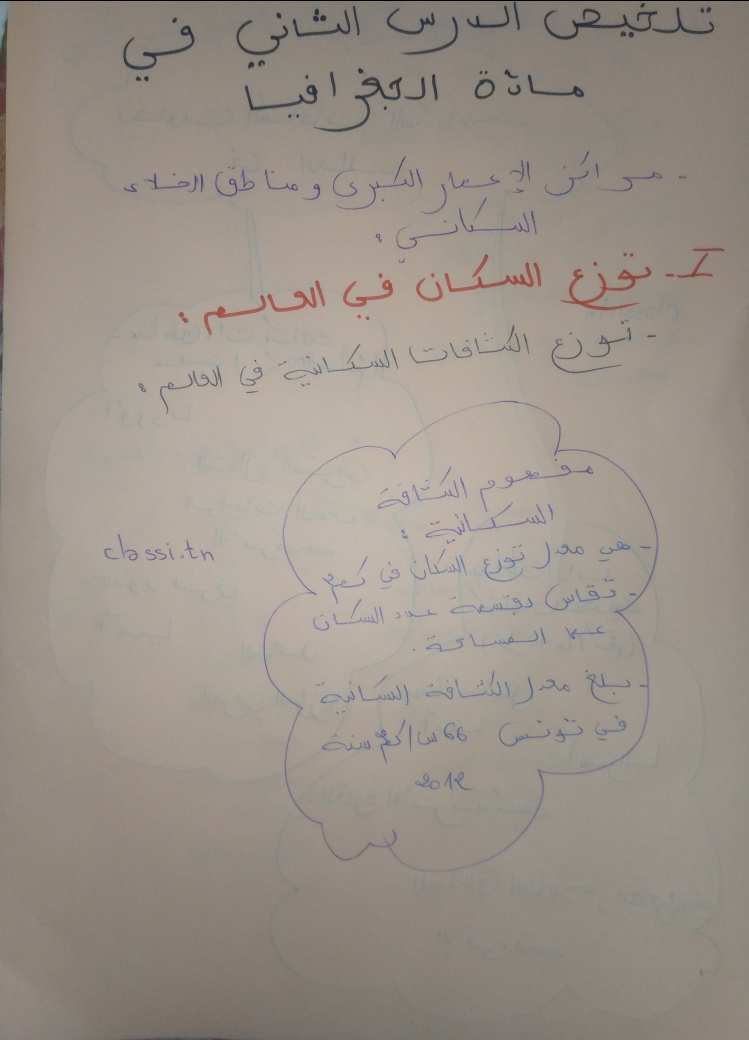 تلخيص الدرس الثاني في
مادة الجغرافيا
- مراكز الإعمار الكبرى ومناطق الخلاء
السكاني :
I - توزع السكان في العالم :
- توزع الكثافات السكانية في العالم :
مفهوم الكثافة
السكانية :
- هي معدل توزع السكان في كم²
- تقاس بقسمة عدد السكان
على المساحة .
- بلغ معدل الكثافة السكانية
في تونس 66 س/كم² سنة
2012
classi.tn